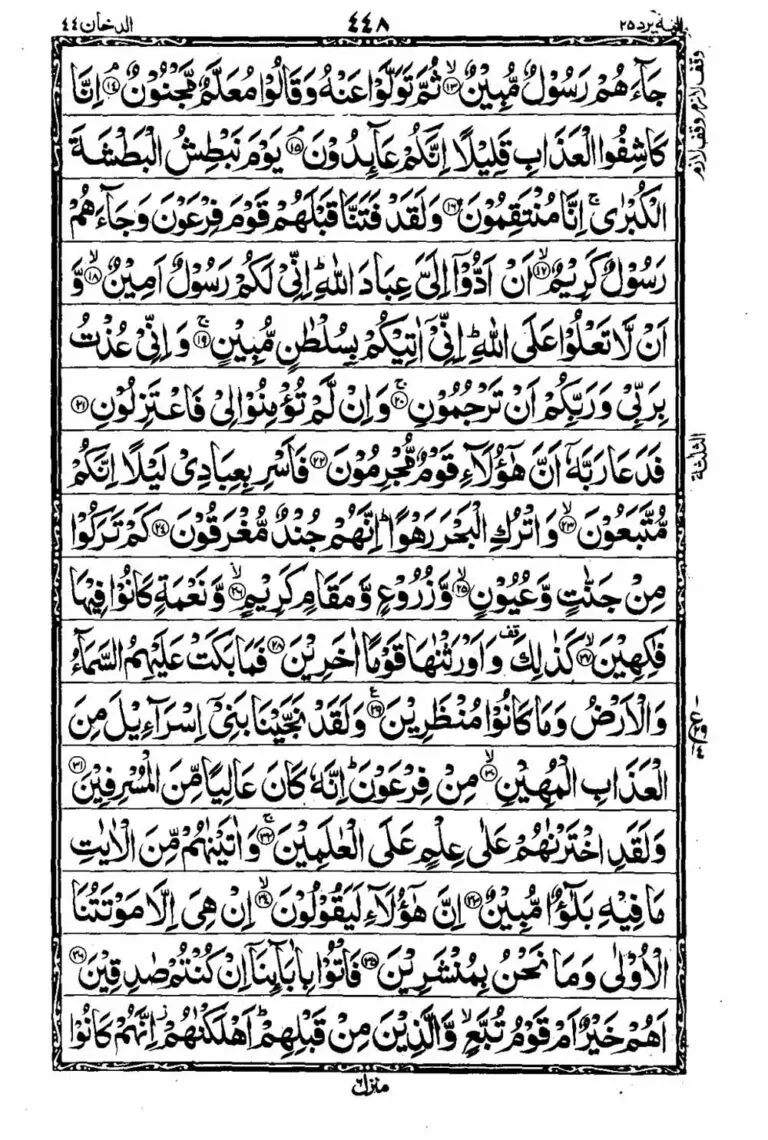 الیه یرد ۲۵ ٤٤٨ الدخان ٤٤
جَآءَهُمْ رَسُوْلٌ مُّبِيْنٌ ۙ‏﴿۱۳﴾ ثُمَّ تَوَلَّوْا عَنْهُ وَقَالُوْا مُعَلَّمٌ مَّجْنُوْنٌ ۘ‏﴿۱۴﴾ اِنَّا
كَاشِفُوا الْعَذَابِ قَلِيْلًا اِنَّكُمْ عَآئِدُوْنَ ۘ‏﴿۱۵﴾ يَوْمَ نَبْطِشُ الْبَطْشَةَ
الْكُبْرٰى ۚ اِنَّا مُنْتَقِمُوْنَ ﴿۱۶﴾ وَلَقَدْ فَتَنَّا قَبْلَهُمْ قَوْمَ فِرْعَوْنَ وَجَآءَهُمْ
رَسُوْلٌ كَرِيْمٌ ۙ﴿۱۷﴾ اَنْ اَدُّوْٓا اِلَىَّ عِبَادَ اللّٰهِ ؕ اِنِّىْ لَكُمْ رَسُوْلٌ اَمِيْنٌ ۙ﴿۱۸﴾ وَّ
اَنْ لَّا تَعْلُوْا عَلَى اللّٰهِ ؕ اِنِّىْٓ اٰتِيْكُمْ بِسُلْطٰنٍ مُّبِيْنٍ ۚ﴿۱۹﴾ وَاِنِّىْ عُذْتُ
بِرَبِّىْ وَرَبِّكُمْ اَنْ تَرْجُمُوْنِ ۚ﴿۲۰﴾ وَاِنْ لَّمْ تُؤْمِنُوْا لِىْ فَاعْتَزِلُوْنِ ﴿۲۱﴾
فَدَعَا رَبَّهٗٓ اَنَّ هٰٓؤُلَآءِ قَوْمٌ مُّجْرِمُوْنَ ﴿۲۲﴾ فَاَسْرِ بِعِبَادِىْ لَيْلًا اِنَّكُمْ
مُّتَّبَعُوْنَ ۙ﴿۲۳﴾ وَاتْرُكِ الْبَحْرَ رَهْوًا ؕ اِنَّهُمْ جُنْدٌ مُّغْرَقُوْنَ ﴿۲۴﴾ كَمْ تَرَكُوْا
مِنْ جَنّٰتٍ وَّعُيُوْنٍ ۙ﴿۲۵﴾ وَّزُرُوْعٍ وَّمَقَامٍ كَرِيْمٍ ۙ﴿۲۶﴾ وَّنَعْمَةٍ كَانُوْا فِيْهَا
فٰكِهِيْنَ ۙ﴿۲۷﴾ كَذٰلِكَ ࣞ وَاَوْرَثْنٰهَا قَوْمًا اٰخَرِيْنَ ﴿۲۸﴾ فَمَا بَكَتْ عَلَيْهِمُ السَّمَآءُ
وَالْاَرْضُ وَمَا كَانُوْا مُنْظَرِيْنَ ﴿۲۹﴾ وَلَقَدْ نَجَّيْنَا بَنِىْٓ اِسْرَآءِيْلَ مِنَ
الْعَذَابِ الْمُهِيْنِ ۙ﴿۳۰﴾ مِنْ فِرْعَوْنَ ؕ اِنَّهٗ كَانَ عَالِيًا مِّنَ الْمُسْرِفِيْنَ ﴿۳۱﴾
وَلَقَدِ اخْتَرْنٰهُمْ عَلٰى عِلْمٍ عَلَى الْعٰلَمِيْنَ ۚ﴿۳۲﴾ وَاٰتَيْنٰهُمْ مِّنَ الْاٰيٰتِ
مَا فِيْهِ بَلٰٓـؤٌا مُّبِيْنٌ ﴿۳۳﴾ اِنَّ هٰٓؤُلَآءِ لَيَقُوْلُوْنَ ۙ﴿۳۴﴾ اِنْ هِىَ اِلَّا مَوْتَتُنَا
الْاُوْلٰى وَمَا نَحْنُ بِمُنْشَرِيْنَ ﴿۳۵﴾ فَاْتُوْا بِاٰبَآئِنَآ اِنْ كُنْتُمْ صٰدِقِيْنَ ﴿۳۶﴾
اَهُمْ خَيْرٌ اَمْ قَوْمُ تُبَّعٍ ۙ وَّالَّذِيْنَ مِنْ قَبْلِهِمْ ؕ اَهْلَكْنٰهُمْ ؗ اِنَّهُمْ كَانُوْا
وقف لازم وقف لازم
الثلثة
ع
منزل ٦